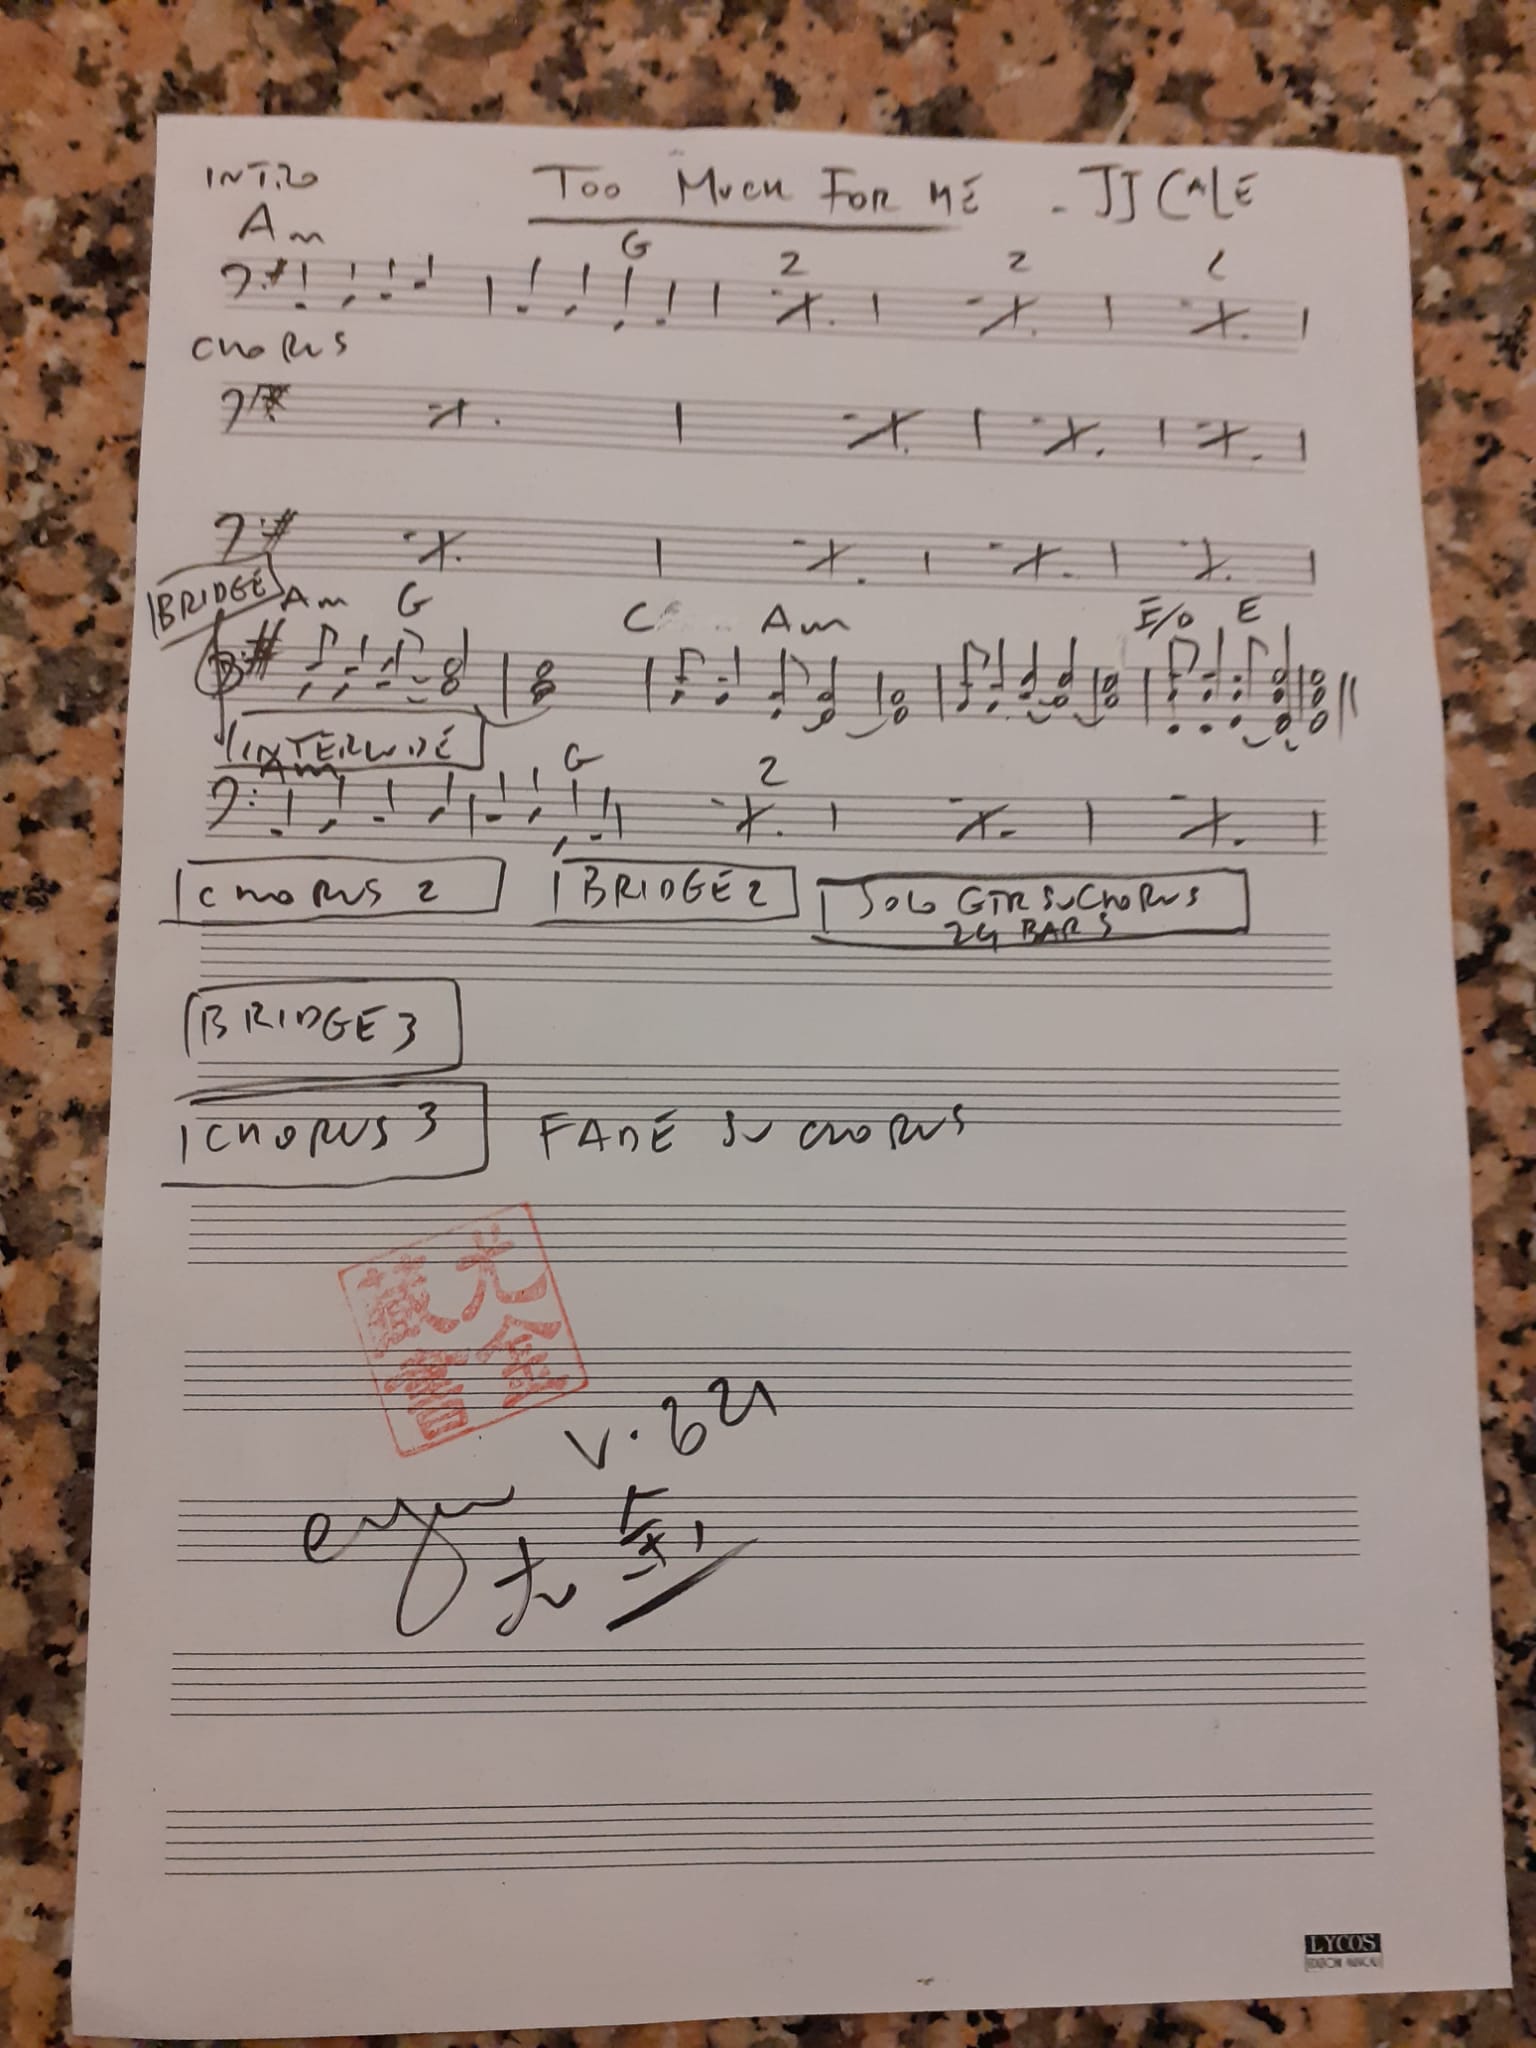 INTRO TOO MUCH FOR ME - JJ CALE
Am G 2 2 2
CHORUS
BRIDGE Am G C Am E/D E
INTERLUDE
Am G 2
CHORUS 2 BRIDGE 2 SOLO GTR SU CHORUS
24 BARS
BRIDGE 3
CHORUS 3 FADE SU CHORUS
尤金
藏書
LYCOS
EDIZIONI MUSICALI